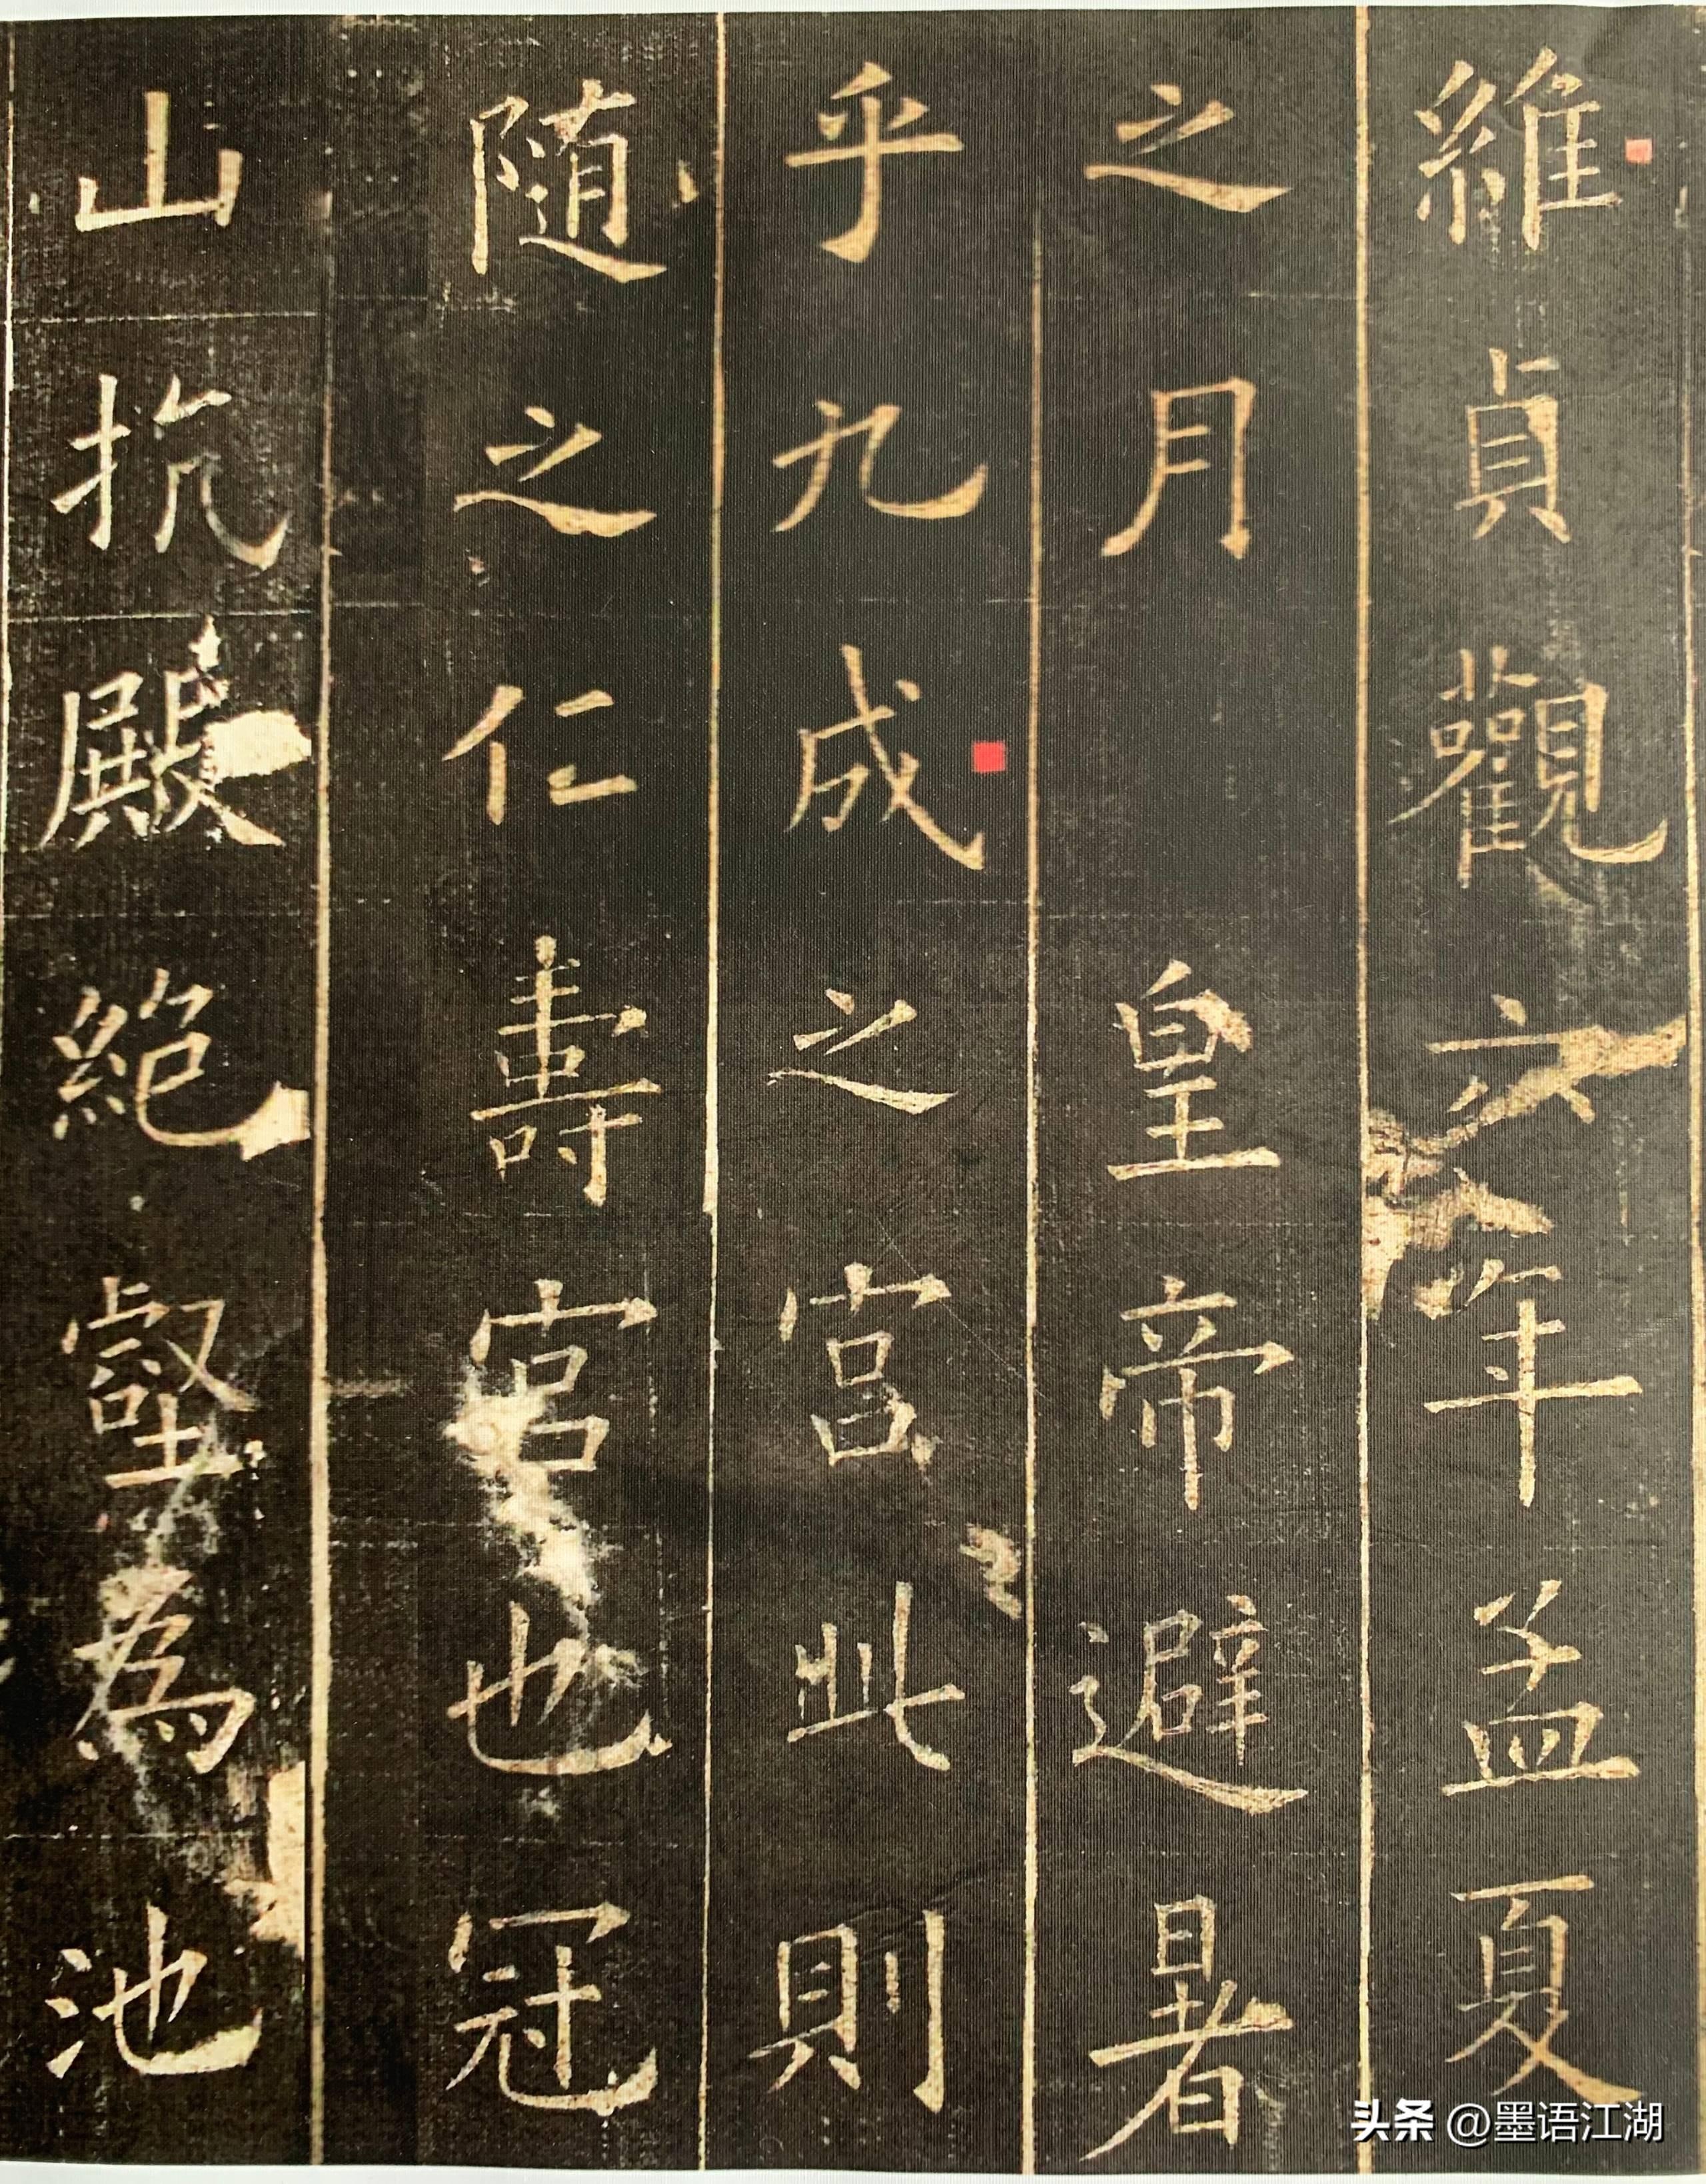 維貞觀六年孟夏
之月皇帝避暑
乎九成之宮此則
随之仁壽宮也冠
山抗殿絶壑為池
头条 @墨语江湖